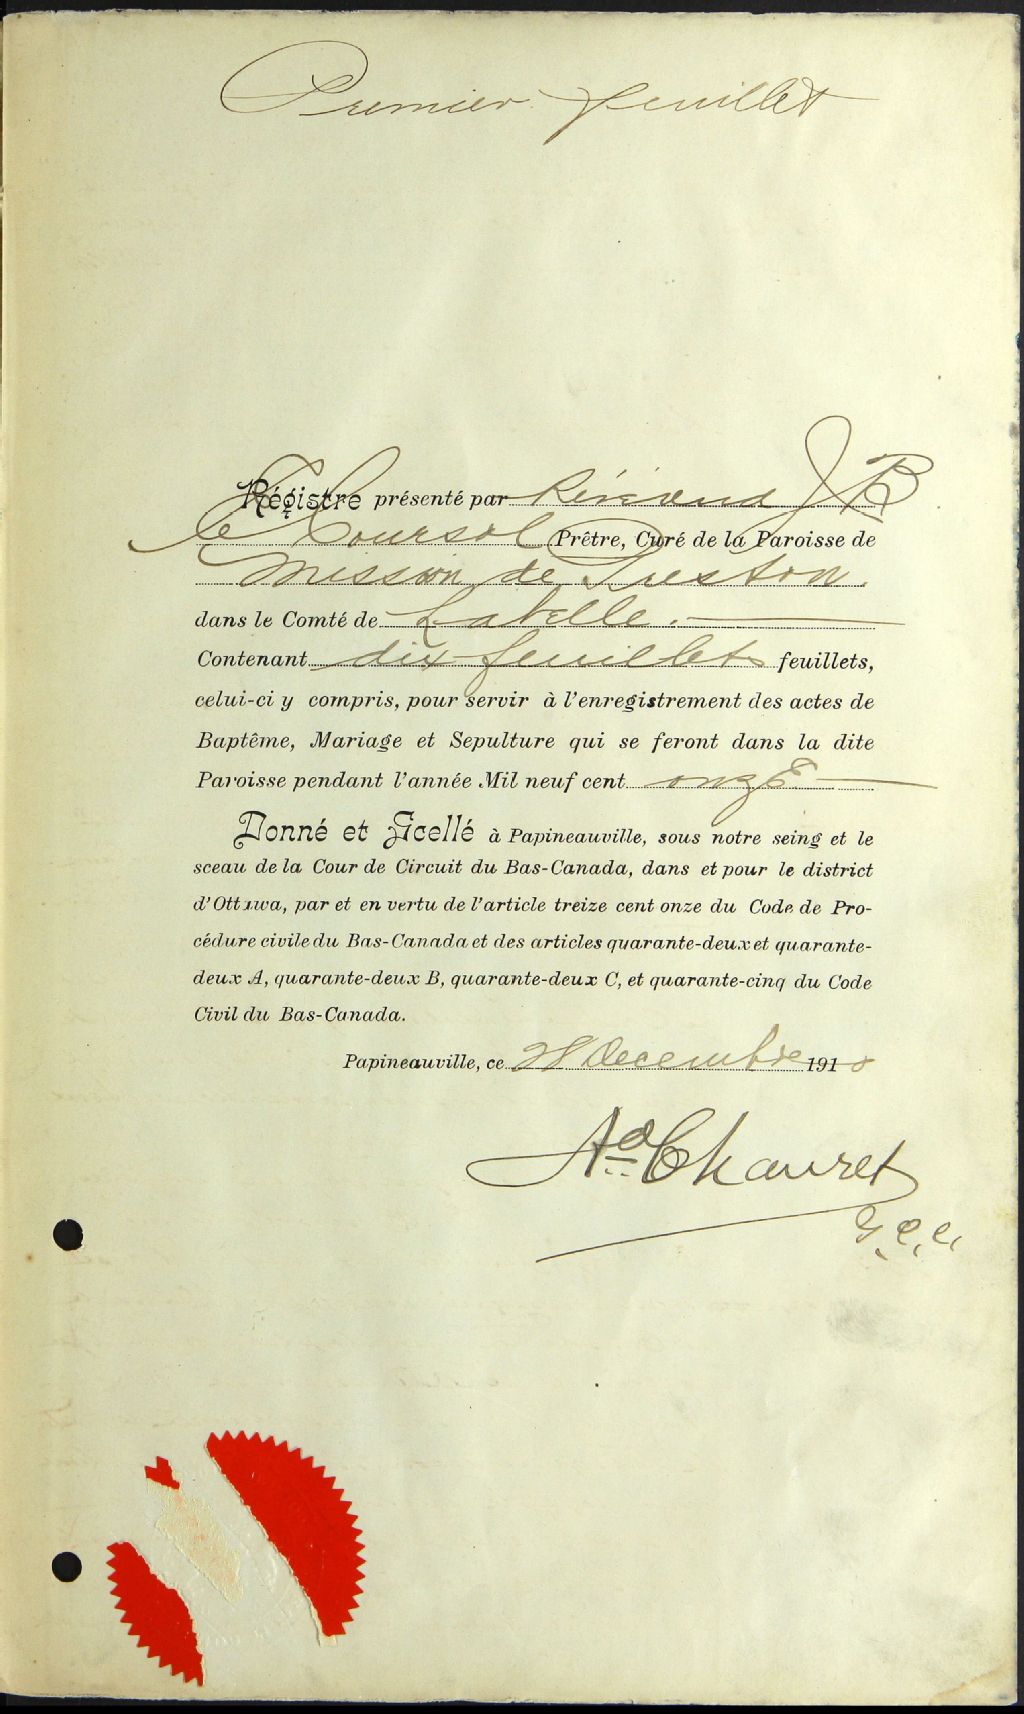 Premier feuillet
Régistre présenté par Révérend J B
Coursol Prêtre, Curé de la Paroisse de
Mission de Preston.
dans le Comté de Labelle.
Contenant dix feuillets feuillets,
celui-ci y compris, pour servir à l'enregistrement des actes de
Baptême, Mariage et Sepulture qui se feront dans la dite
Paroisse pendant l'année Mil neuf cent onze
Donné et Scellé à Papineauville, sous notre seing et le
sceau de la Cour de Circuit du Bas-Canada, dans et pour le district
d'Ottawa, par et en vertu de l'article treize cent onze du Code de Pro-
cédure civile du Bas-Canada et des articles quarante-deux et quarante-
deux A, quarante-deux B, quarante-deux C, et quarante-cinq du Code
Civil du Bas-Canada.
Papineauville, ce 28 Decembre 1910
Ad Chauret
G. C. C.